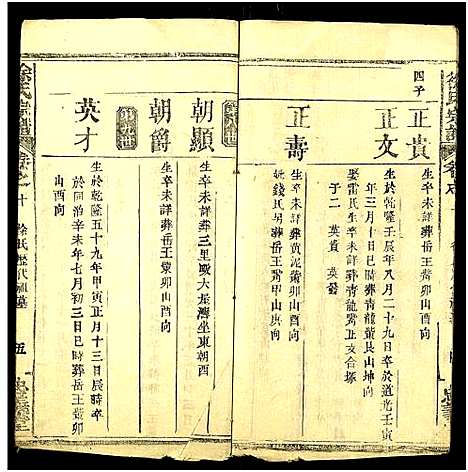 四子
正貴
生卒未詳葬岳王䕃卯山酉向
正文
生於乾隆壬辰年八月二十九日卒於道光壬辰
年三月十日巳時葬青龍䕃艮山坤向
娶雷氏生卒未詳葬青龍䕃與正文合塚
子二 英貴 英發
正壽
生卒未詳葬黄泥䕃卯山
娶錢氏另葬岳王䕃卯山酉向
朝顯
生卒未詳葬三里畈大星灣坐東朝西
朝爵
生卒未詳葬岳王䕃卯山酉向
英才
生於乾隆五十九年甲寅正月十三日辰時卒
於同治辛未年七月初三日巳時葬岳王䕃卯
山酉向
徐氏宗譜
卷之十
徐氏歷代祖墓
五